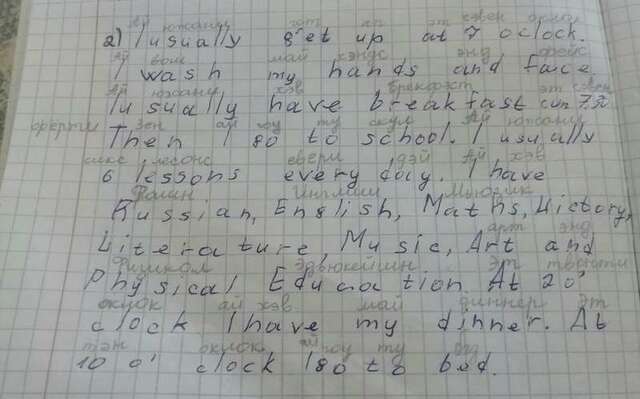 ай южалли гэт ап эт сэвен оклок
2) I usually get up at 7 oclock.
Ай вош май хэндс энд фэйс
I wash my hands and face
Ай южалли хэв брекфаст эт сэвен
I usually have breakfast at 7.30
зен ай гоу ту скул Ай южалли
Then I go to school. I usually
сикс лесонс еври дэй Ай хэв
6 lessons every day. I have
Рашн Инглиш Мьюзик
Russian, English, Maths, History,
арт энд
Literature, Music, Art and
Физикал Эдьюкейшин Эт
Physical Education. At 20'
оклок ай хэв май диннер Эт
clock I have my dinner. At
тэн оклок ай гоу ту бэд
10 o' clock I go to bed.